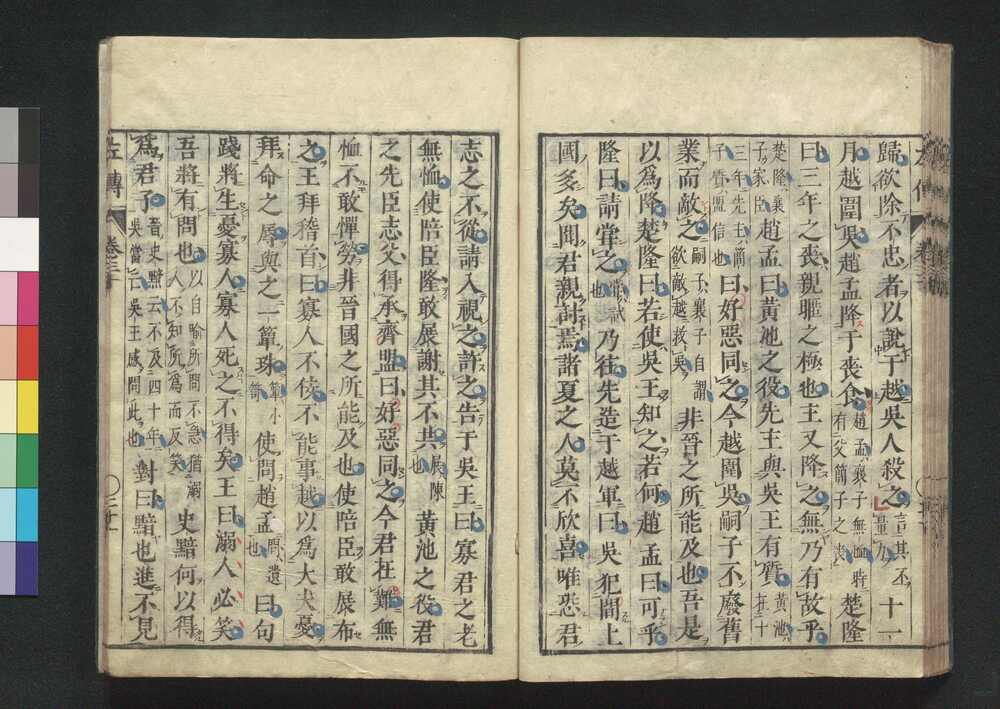 歸欲除不忠者以說于越吳人殺之言其不量力十一
月越圍吳趙孟降于喪食趙孟襄子無恤時有父簡子之喪楚隆
曰三年之喪親暱之極也王又降之無乃有故乎
楚隆襄子家臣趙孟曰黃池之役先王與吳王有質黃池在十
三年先主簡子質盟信也曰好惡同之今越圍吳嗣子不廢舊
業而敵之嗣子襄子自謂欲敵越救吳非晉之所能及也吾是
以爲降楚隆曰若使吳王知之若何趙孟曰可乎
隆曰請嘗之嘗試也乃往先造于越軍曰吳犯間上
國多矣聞君親討焉諸夏之人莫不欣喜唯恐君
志之不從請入視之許之告于吳王曰寡君之老
無恤使陪臣隆敢展謝其不共展陳也黃池之役君
之先臣志父得承齊盟曰好惡同之今君在難無
恤不敢憚勞非晉國之所能及也使陪臣敢展布
之王拜稽首曰寡人不佞不能事越以爲大夫憂
拜命之辱與之一簞珠簞小笥使問趙孟問遺也曰句
踐將生憂寡人寡人死之不得矣王曰溺人必笑
吾將有問也以自喻所問不急猶溺人不知所爲而反笑史黯何以得
爲君子晉史黯云不及四十年吳當亡吳王感問此也對曰黯也進不見
左傳 卷三十